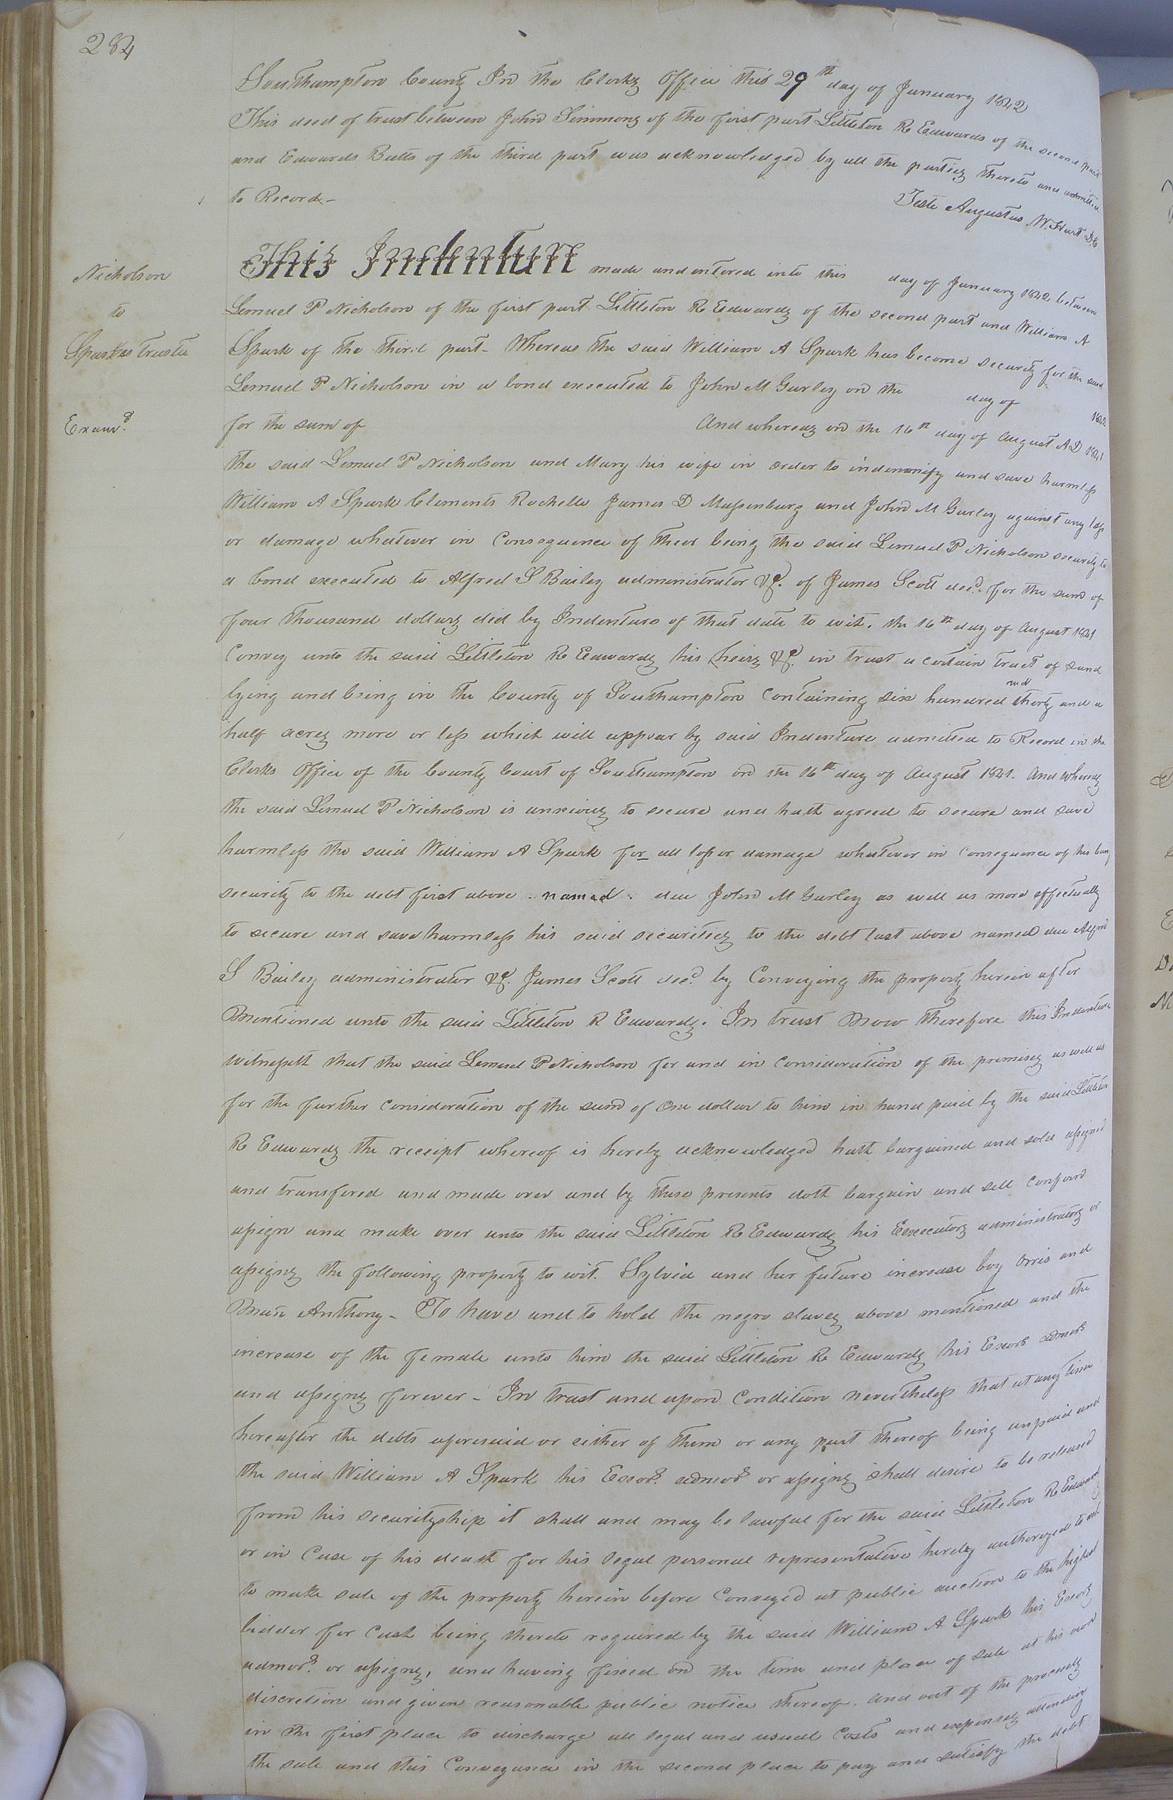 284
Southampton County In the Clerks Office this 29th day of January 1842
This deed of trust between John Simmons of the first part Littleton R Edwards of the second part
and Edwards Butts of the third part was acknowledged by all the parties thereto and admitted
to Record.-
Teste Augustus W. 
This Indenture made and entered into this day of January 1842 between
Nicholson
to
Sparks trustee
Exam.d
Lemuel P Nicholson of the first part Littleton R Edwards of the second part and William A
Spark of the third part- Whereas the said William A Spark has become security for the said
Lemuel P Nicholson in a bond executed to John M Gurley on the day of 184
for the sum of And whereas on the 16th day of August AD 1841
the said Lemuel P Nicholson and Mary his wife in order to indemnify and save harmless
William A Spark Clements Rochelle James D Massenburg and John M Gurley against any loss
or damage whatever in Consequence of their being the said Lemuel P Nicholson security to
a bond executed to Alfred S Bailey administrator &c. of James Scott decd. for the sum of
four thousand dollars did by Indenture of that date to wit, the 16th day of August 1841
Convey unto the said Littleton R Edwards his heirs &c. in trust a certain tract of Land
lying and being in the County of Southampton Containing six hundred and thirty and a
half acres more or less which will appear by said Indenture admitted to Record in the
Clerks Office of the County Court of Southampton on the 16th day of August 1841. And whereas
the said Lemuel P Nicholson is anxious to secure and hath agreed to secure and save
harmless the said William A Spark for all loss or damage whatever in Consequence of his being
security to the debt first above - named - due John M Gurley as well as more effectually
to secure and save harmless his said securities to the debt last above named due Alfred
S Bailey administrator &c. James Scott decd. by Conveying the property herein after
Mentioned unto the said Littleton R Edwards. In trust Now therefore this Indenture
witnesseth that the said Lemuel P Nicholson for and in Consideration of the premises as well as
for the further Consideration of the sum of One dollar to him in hand paid by the said Littleton
R Edwards the receipt whereof is hereby acknowledged hath bargained and sold assigned
and transfered and made over and by these presents doth bargain and sell 
assign and make over unto the said Littleton R Edwards his Exsecutors administrators or
assigns the following property to wit. Sylvia and her future increase boy Orris and
Man Anthony - To have and to hold the negro slaves above mentioned and the
increase of the female unto him the said Littleton R Edwards his Exors admors
and assigns forever - In trust and upon Condition nevertheless that at any time
hereafter the debts aforesaid or either of them or any part thereof being unpaid and
the said William A Spark his Exors. admors. or assigns shall desire to be released
from his securityship it shall and may be lawful for the said Littleton R Edwards
or in Case of his death for his legal personal representative hereby authorized to act
to make sale of the property herein before Conveyed at public auction to the highest
bidder for Cash being thereto required by the said William A Spark his Exors
admors. or assigns, and having fixed on the time and place of sale at his own
discretion and given reasonable public notice thereof. And out of the proceeds
in the first place to discharge all legal and usual Costs and expenses attending
the sale and this Conveyance in the second place to pay and satisfy the debt